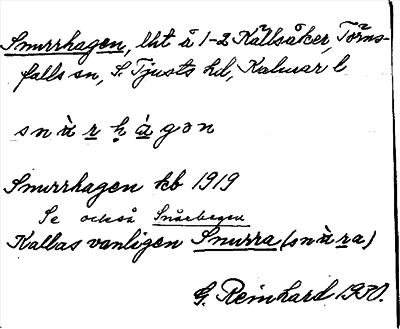 Snurrhagen, lht å 1-2 Källsåker, Törns-
falls sn, S. Tjusts hd, Kalmar l
snùrḥàgon
Snurrhagen kb 1919
Se också Snurhagen
Kallas vanligen Snurra (snùra)
G. Reinhard 1930.